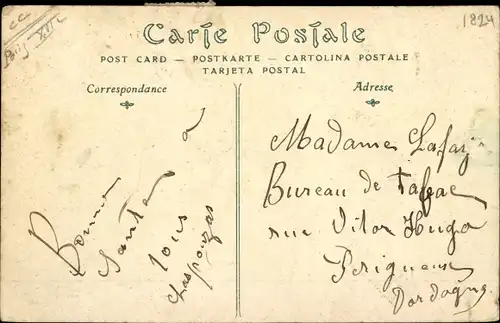 CC
Paris XII
1824
Carte Postale
POST CARD — POSTKARTE — CARTOLINA POSTALE
TARJETA POSTAL
Correspondance
Adresse
Bonne
Santé a
tous
Madame Lafay
Bureau de Tabac
rue Vitor Hugo
Perigueux
Dordogne